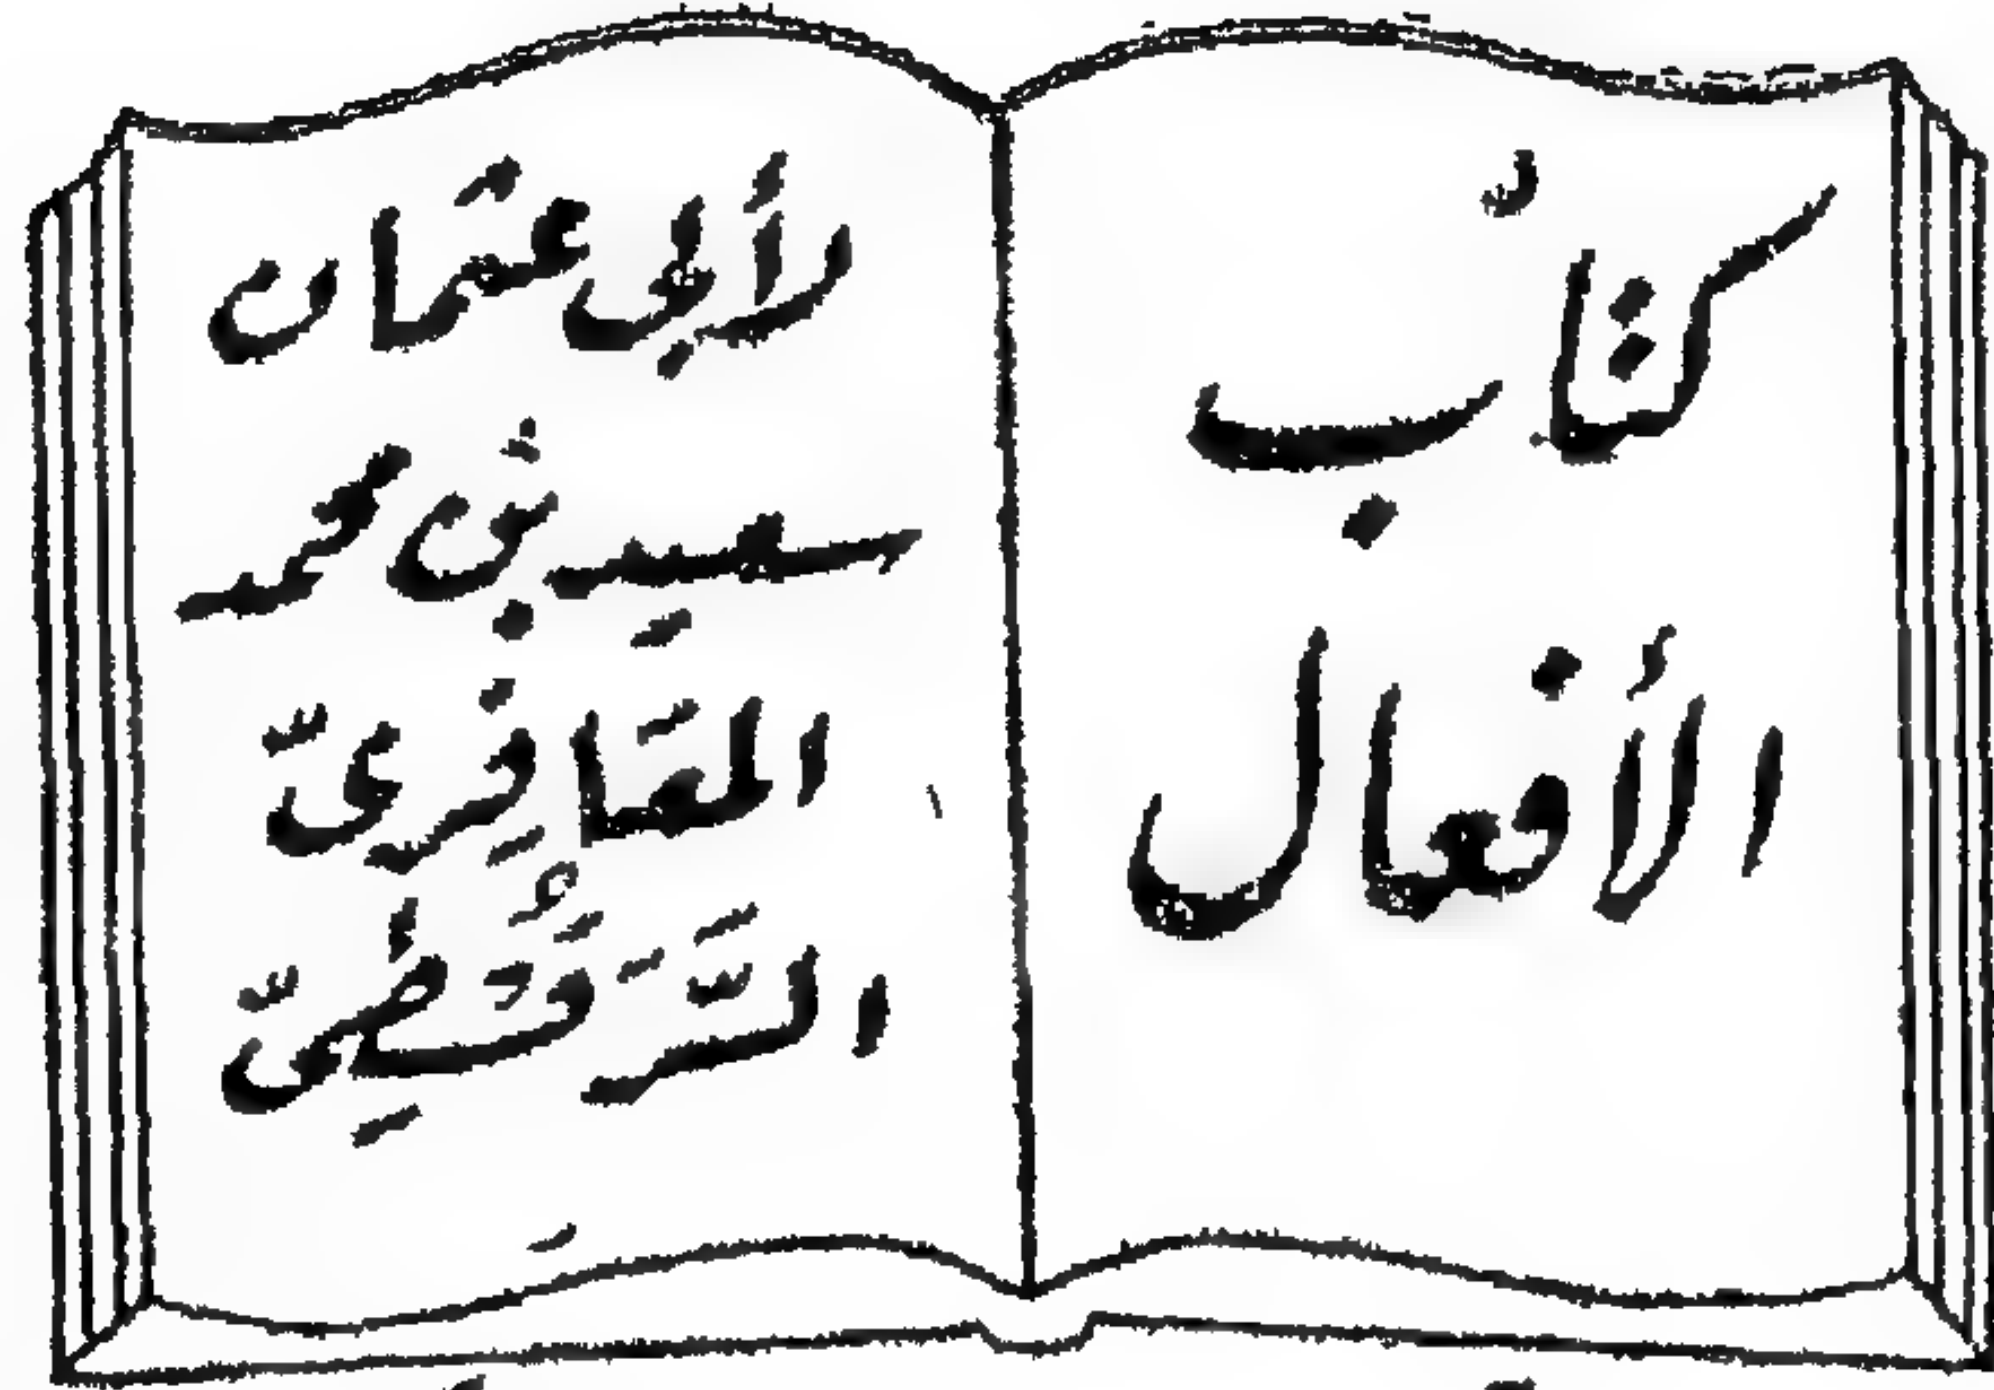 كتابُ
الأفعال
لأَبى عثمَان
سعيد بْن محمد
المعَافِرىّ
السَّرَقُسْطِىّ